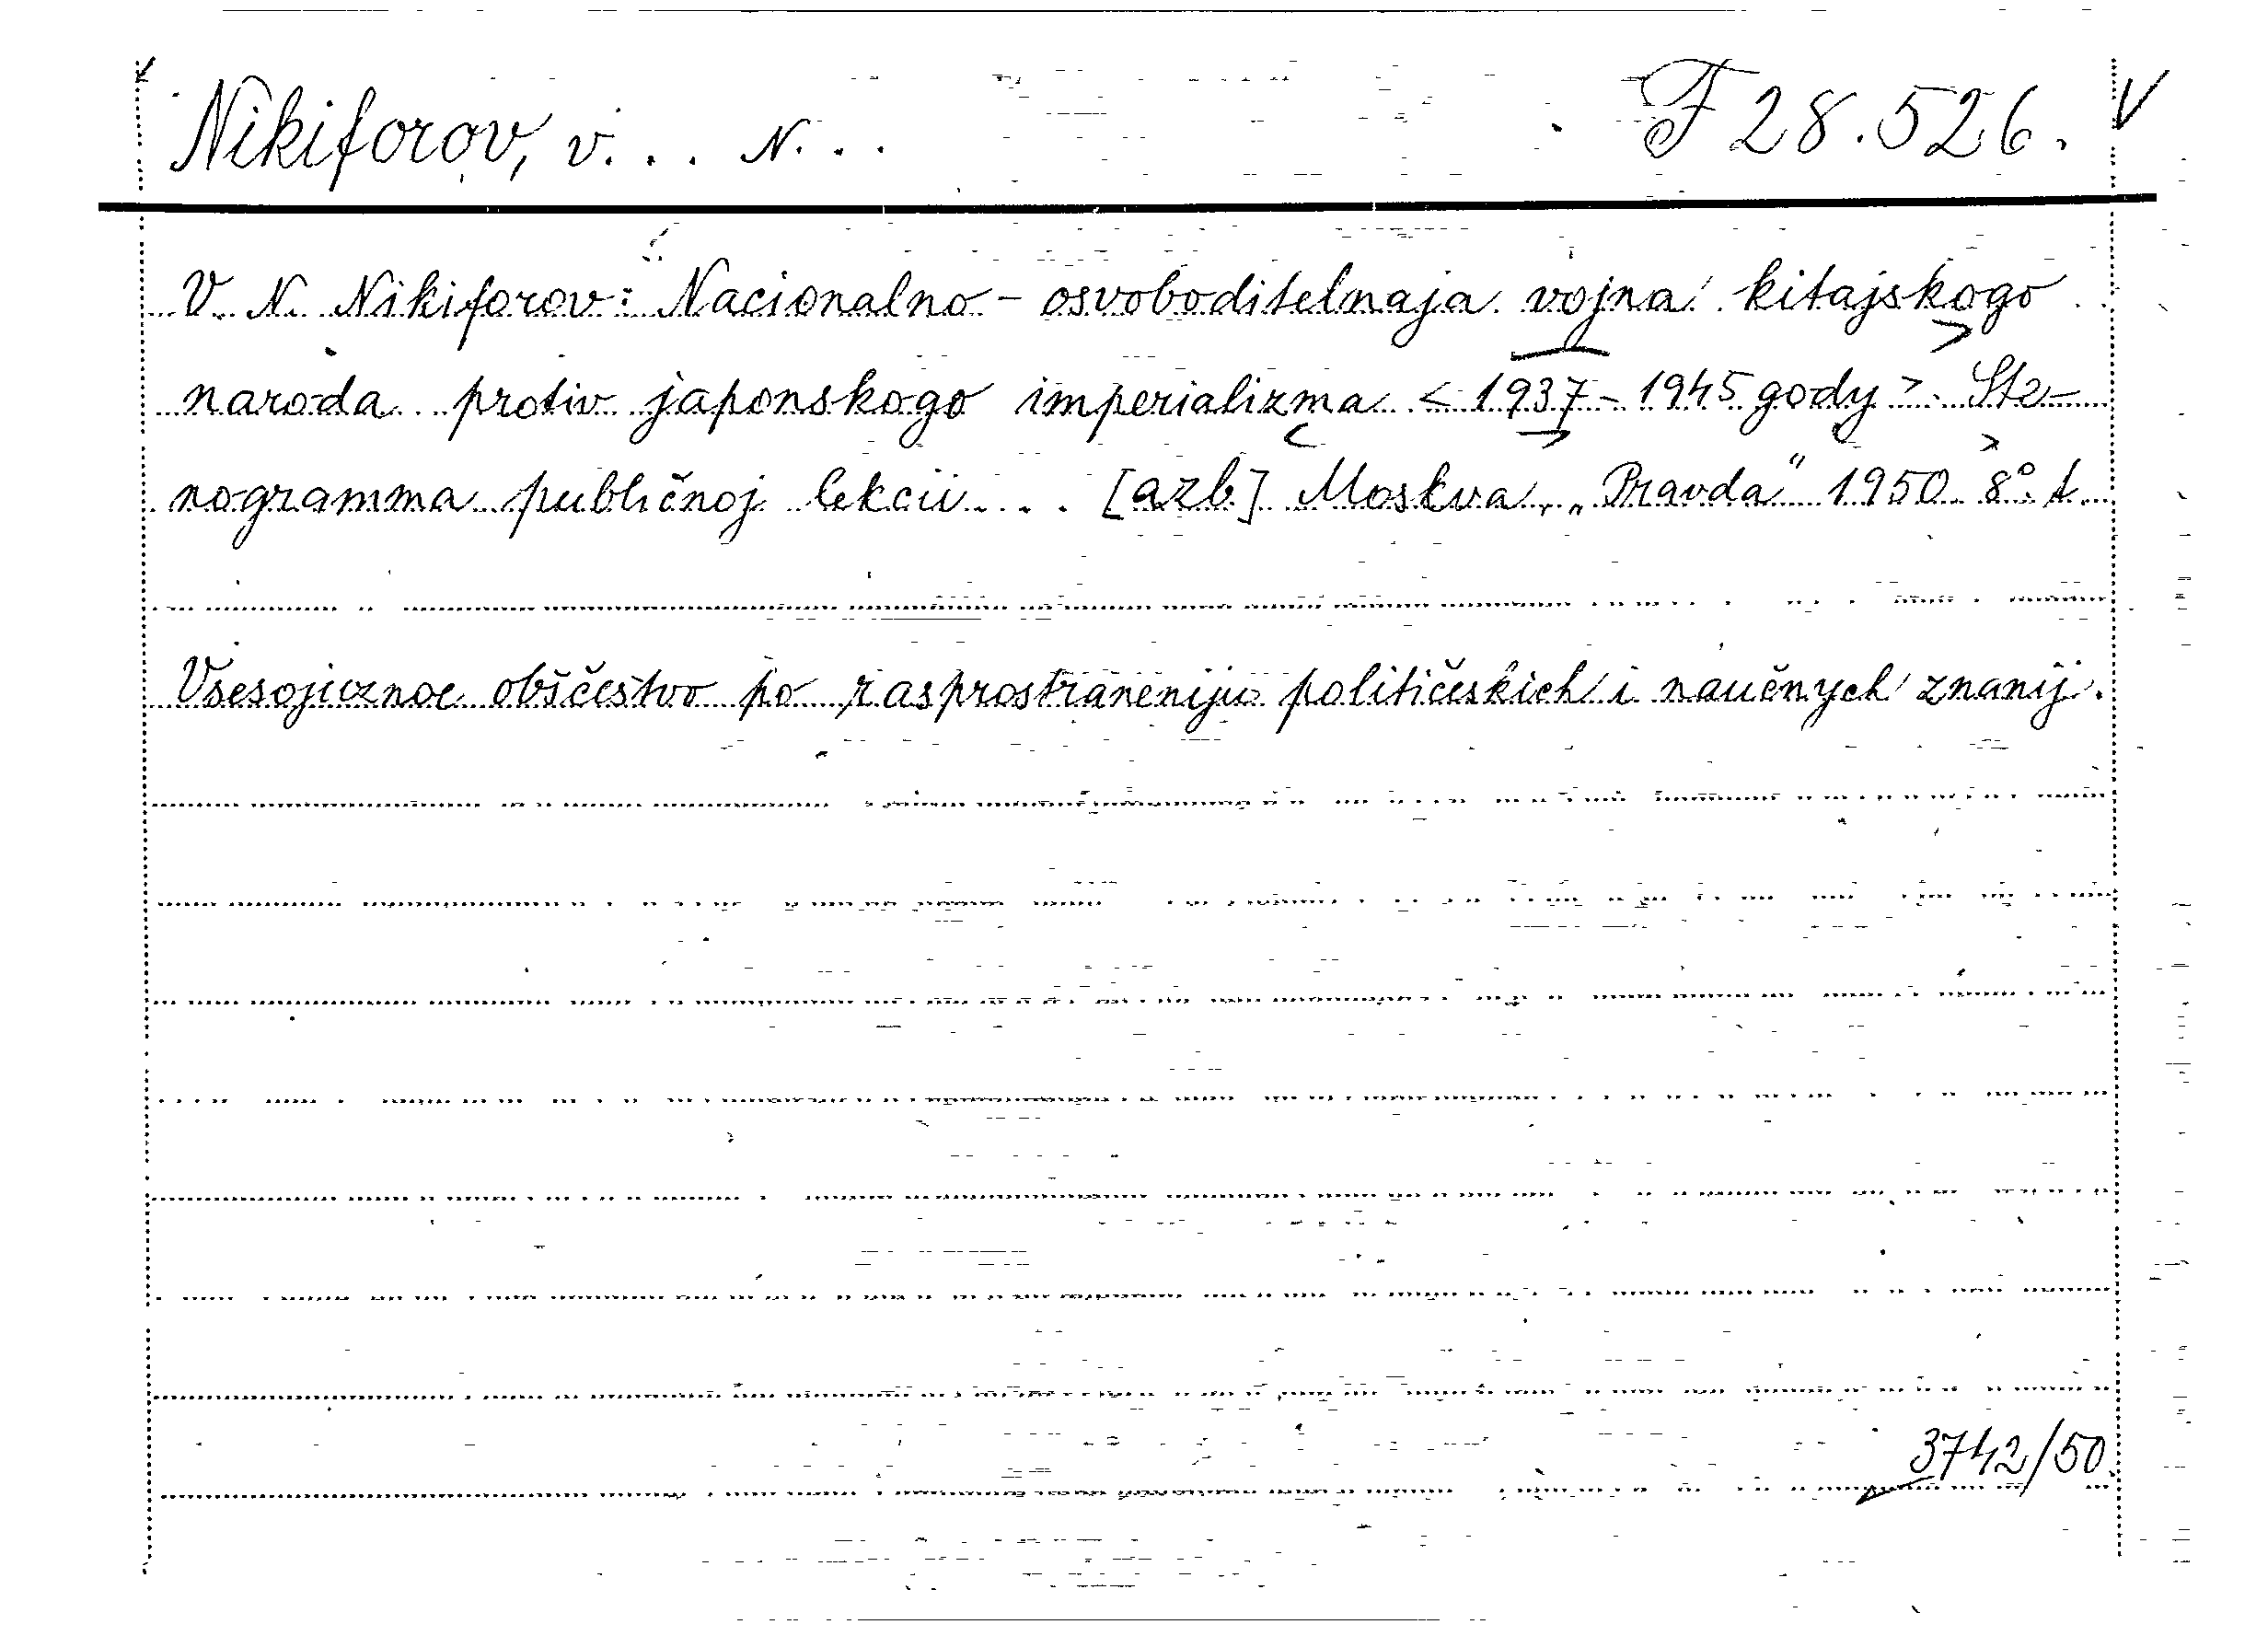 Nikiforov, V... N... F 28.526.
V. N. Nikiforov: Nacionalno-osvoboditelnaja vojna kitajskogo
naroda protiv japonskogo imperializma <1937-1945 gody>. Ste-
nogramma publičnoj lekcii... [azb] Moskva, „Pravda" 1950 8°. t.
Vsesojuznoe obščestvo po rasprostraneniju političeskich i naučnych znanij.
3742/50.